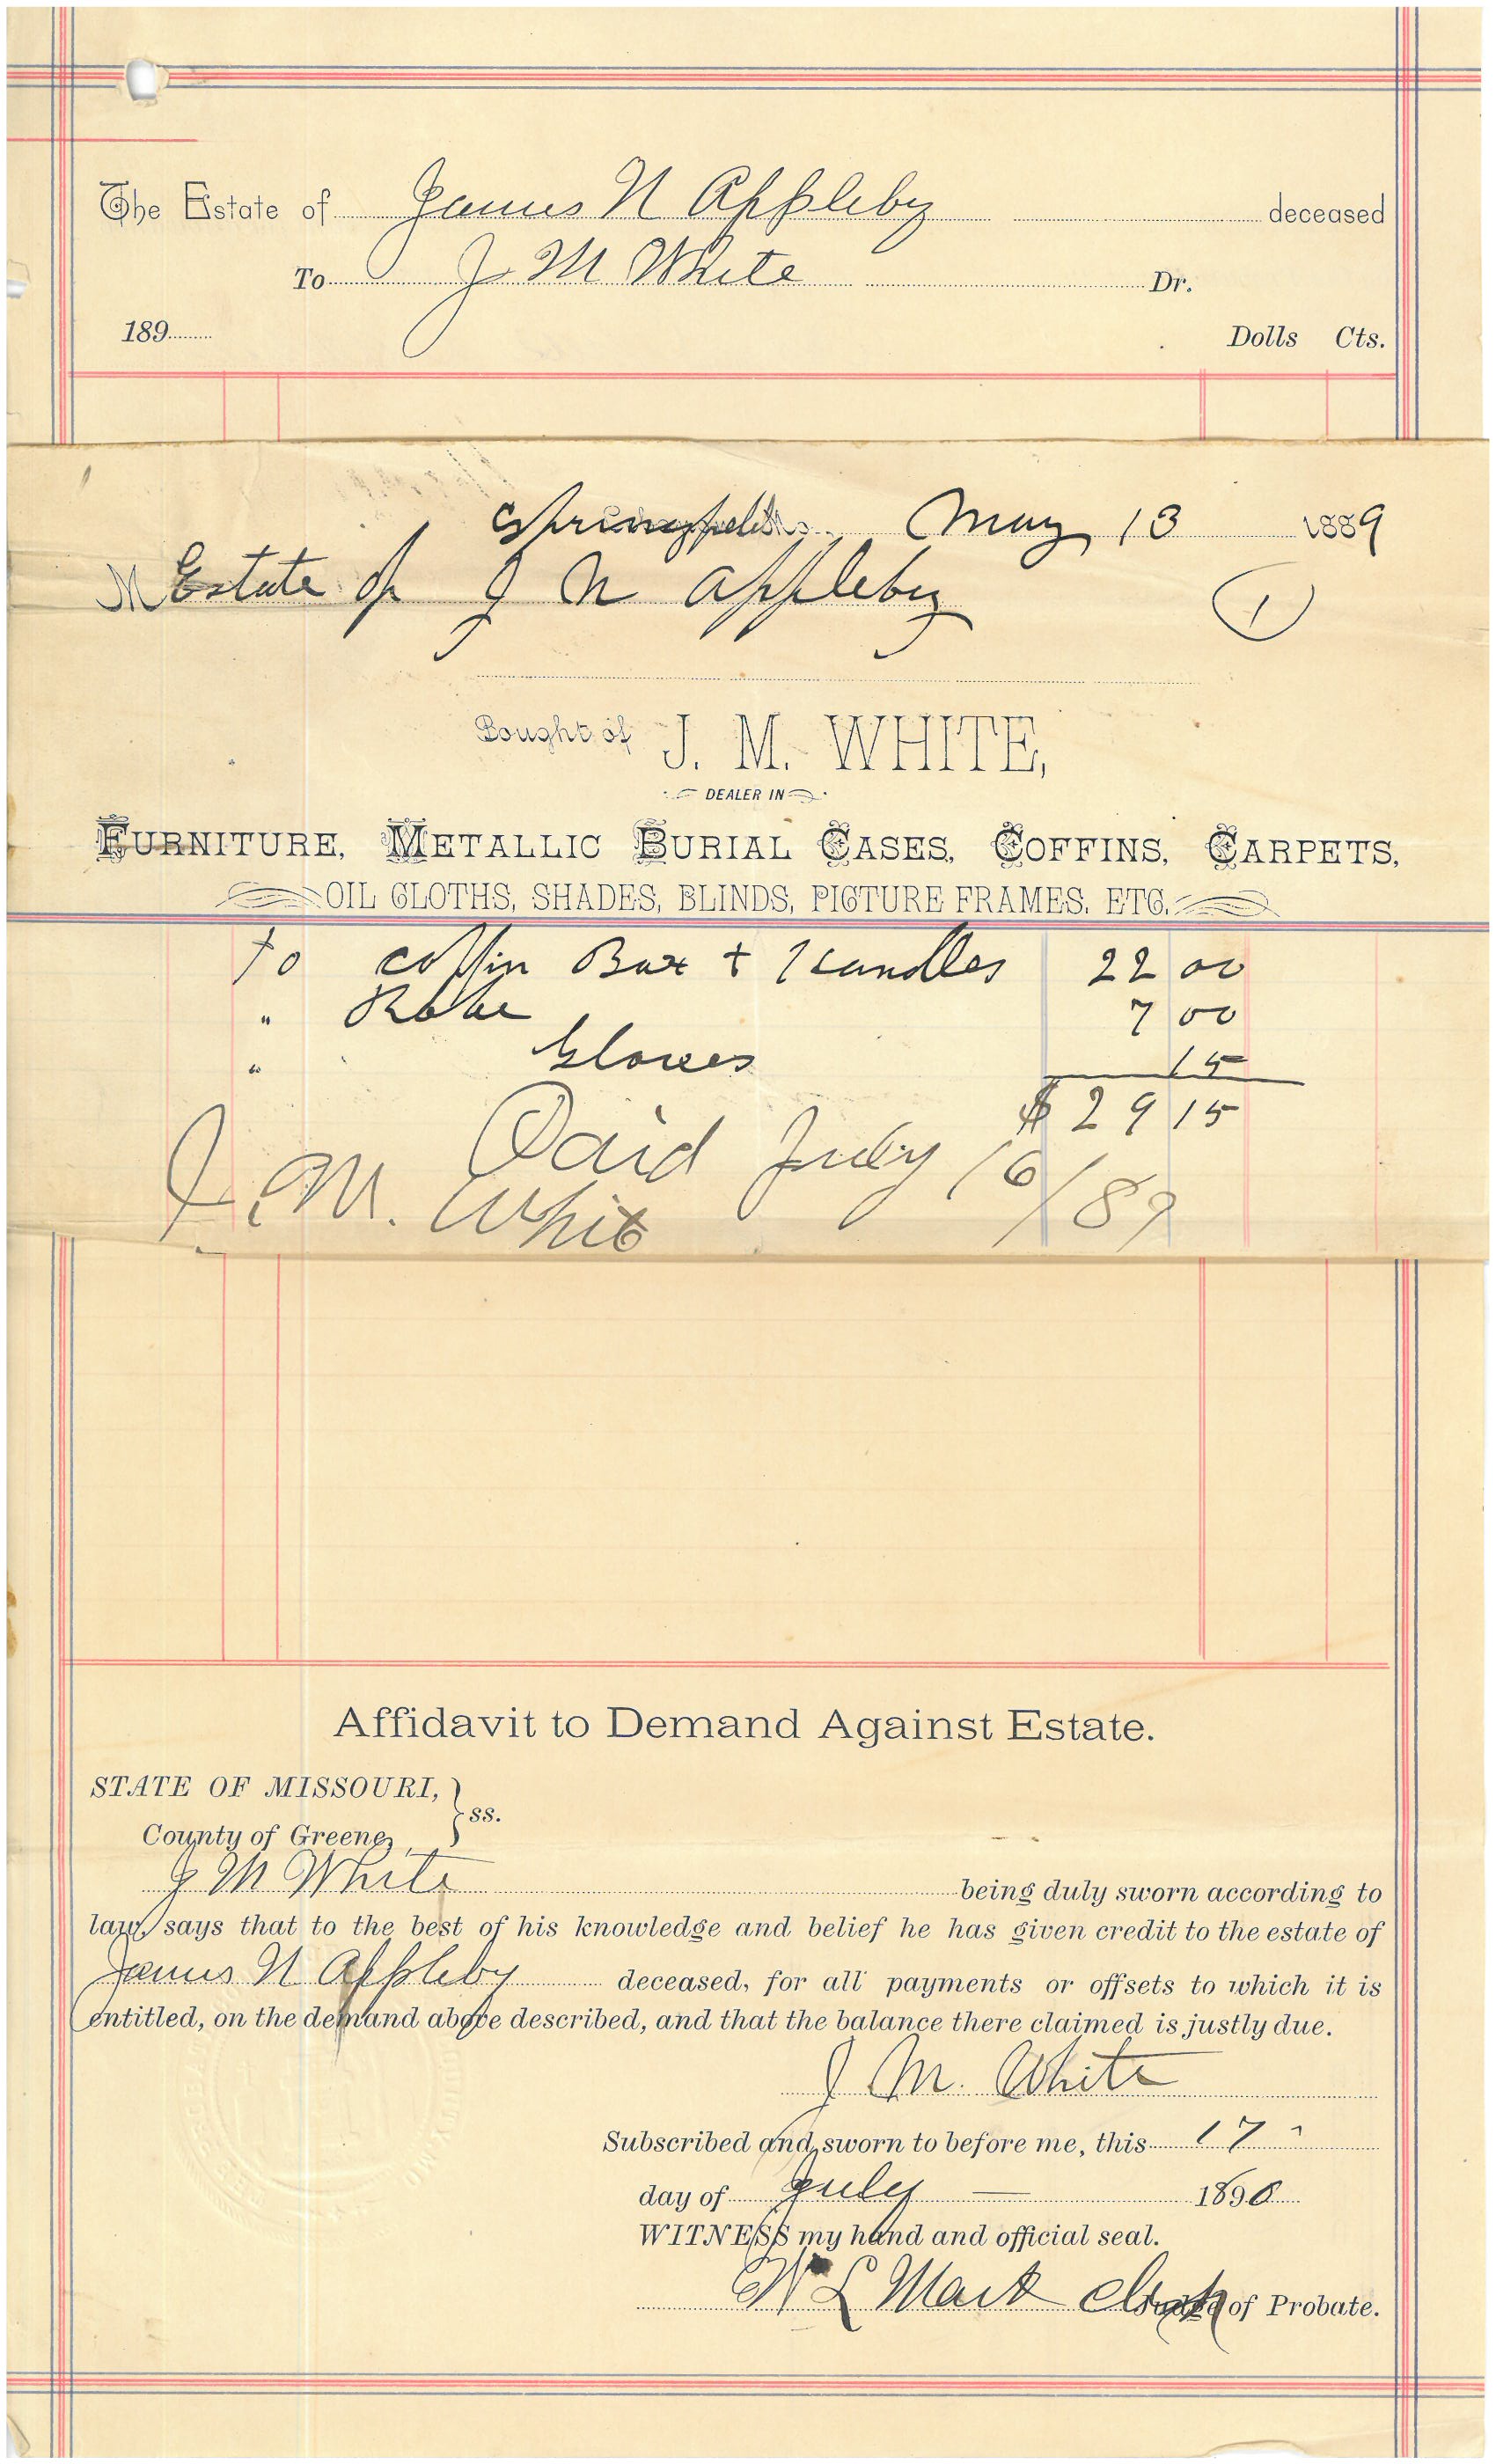 The Estate of James N Appleby deceased
To J M White Dr.
189 Dolls Cts.
Springfield Mo. May 13 1889
M Estate of J N Appleby 1
Bought of J. M. WHITE,
DEALER IN
FURNITURE, METALLIC BURIAL CASES, COFFINS, CARPETS,
OIL CLOTHS, SHADES, BLINDS, PICTURE FRAMES, ETC.
To Coffin Box + Handles 22 00
" Robe 7 00
" Gloves 15
$ 29 15
Paid July 16/89
J. M. White
Affidavit to Demand Against Estate.
STATE OF MISSOURI, } ss.
County of Greene,
J M White being duly sworn according to
law, says that to the best of his knowledge and belief he has given credit to the estate of
James N Appleby deceased, for all payments or offsets to which it is
entitled, on the demand above described, and that the balance there claimed is justly due.
J. M. White
Subscribed and sworn to before me, this 17
day of July 1890
WITNESS my hand and official seal.
W L Mack Clerk of Probate.